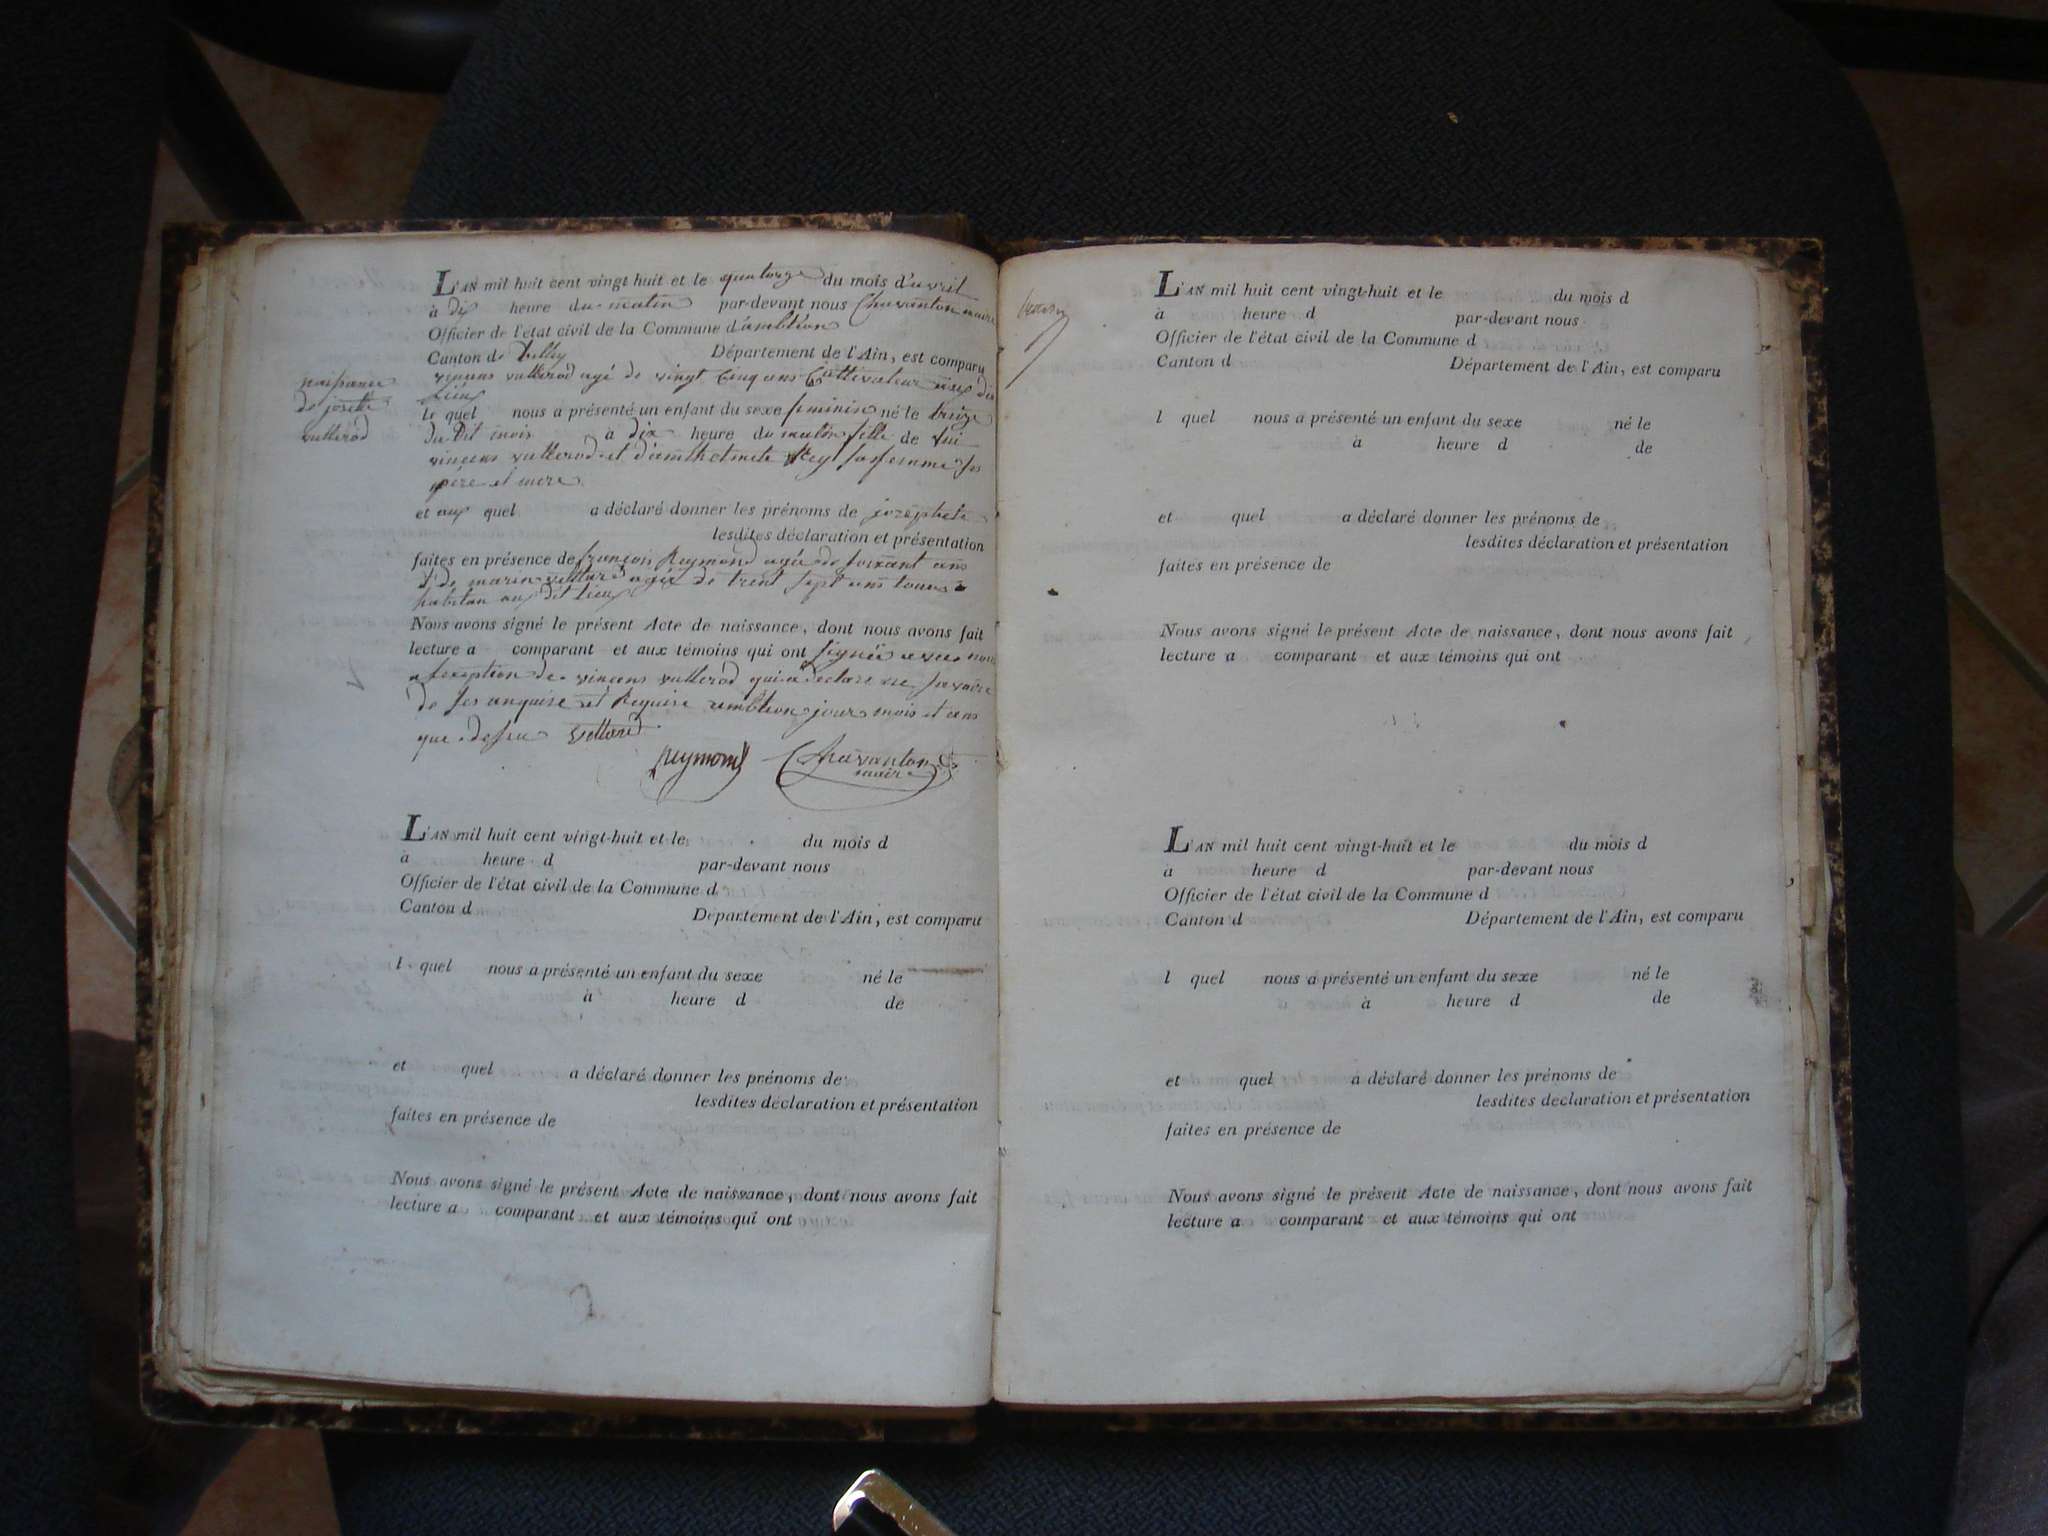 L'AN mil huit cent vingt huit et le quatorze du mois d'avril
à dix heure du matin par-devant nous Chavanton maire
Officier de l'état civil de la Commune d'ambléon
Canton de Belley Département de l'Ain, est comparu
vincens vullerod agé de vingt Cinq ans Cultivateur aux dit
Lieux
naissance
de josete
vullerod
le quel nous a présenté un enfant du sexe feminin né le treize
du Dit mois à dix heure du matin fille de lui
vincens vullerod et d'anthelmete Rey sa femme ses
père et mere
et aux quel a déclaré donner les prénoms de josephete
lesdites déclaration et présentation
faites en présence de françois Reymond agé de soixant ans
& de marin vettard agé de trent sept ans tous
habitan aux dit Lieux
Nous avons signé le présent Acte de naissance, dont nous avons fait
lecture a comparant et aux témoins qui ont signée avec nous
a lexeption de vincens vullerod qui a déclaré ne savoire
de ses enquise et Requise ambléon jour mois et ans
que dessu vettard
reymond Chavanton
maire
L'AN mil huit cent vingt-huit et le du mois d
à heure d par-devant nous
Officier de l'état civil de la Commune d
Canton d Département de l'Ain, est comparu
l quel nous a présenté un enfant du sexe né le
à heure d de
et quel a déclaré donner les prénoms de
lesdites déclaration et présentation
faites en présence de
Nous avons signé le présent Acte de naissance, dont nous avons fait
lecture a comparant et aux témoins qui ont
L'AN mil huit cent vingt-huit et le du mois d
à heure d par-devant nous
Officier de l'état civil de la Commune d
Canton d Département de l'Ain, est comparu
l quel nous a présenté un enfant du sexe né le
à heure d de
et quel a déclaré donner les prénoms de
lesdites déclaration et présentation
faites en présence de
Nous avons signé le présent Acte de naissance, dont nous avons fait
lecture a comparant et aux témoins qui ont
L'AN mil huit cent vingt-huit et le du mois d
à heure d par-devant nous
Officier de l'état civil de la Commune d
Canton d Département de l'Ain, est comparu
l quel nous a présenté un enfant du sexe né le
à heure d de
et quel a déclaré donner les prénoms de
lesdites declaration et présentation
faites en présence de
Nous avons signé le présent Acte de naissance, dont nous avons fait
lecture a comparant et aux témoins qui ont